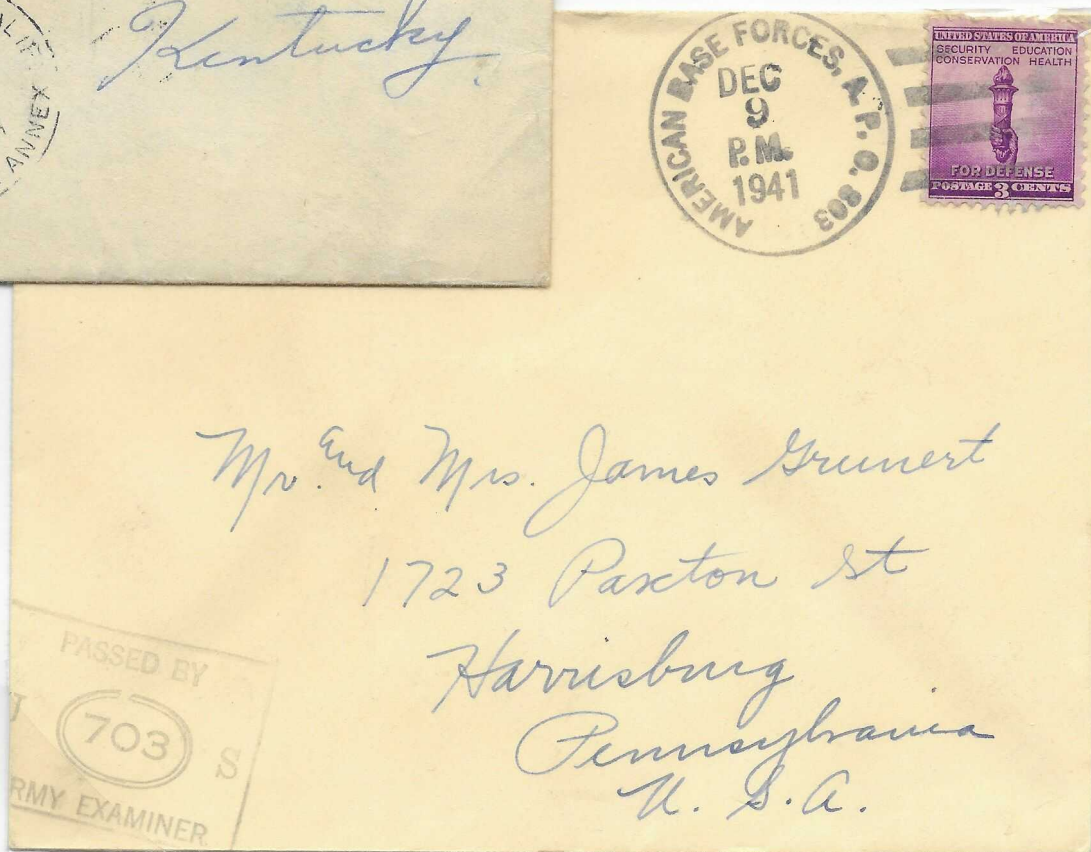 Kentucky.
ANNEX
AMERICAN BASE FORCES, A. P. O. 803
DEC
9
P.M.
1941
UNITED STATES OF AMERICA
SECURITY EDUCATION
CONSERVATION HEALTH
FOR DEFENSE
POSTAGE 3 CENTS
Mr. and Mrs. James Grunert
1723 Paxton St
Harrisburg
Pennsylvania
U. S. A.
PASSED BY
U 703 S
RMY EXAMINER